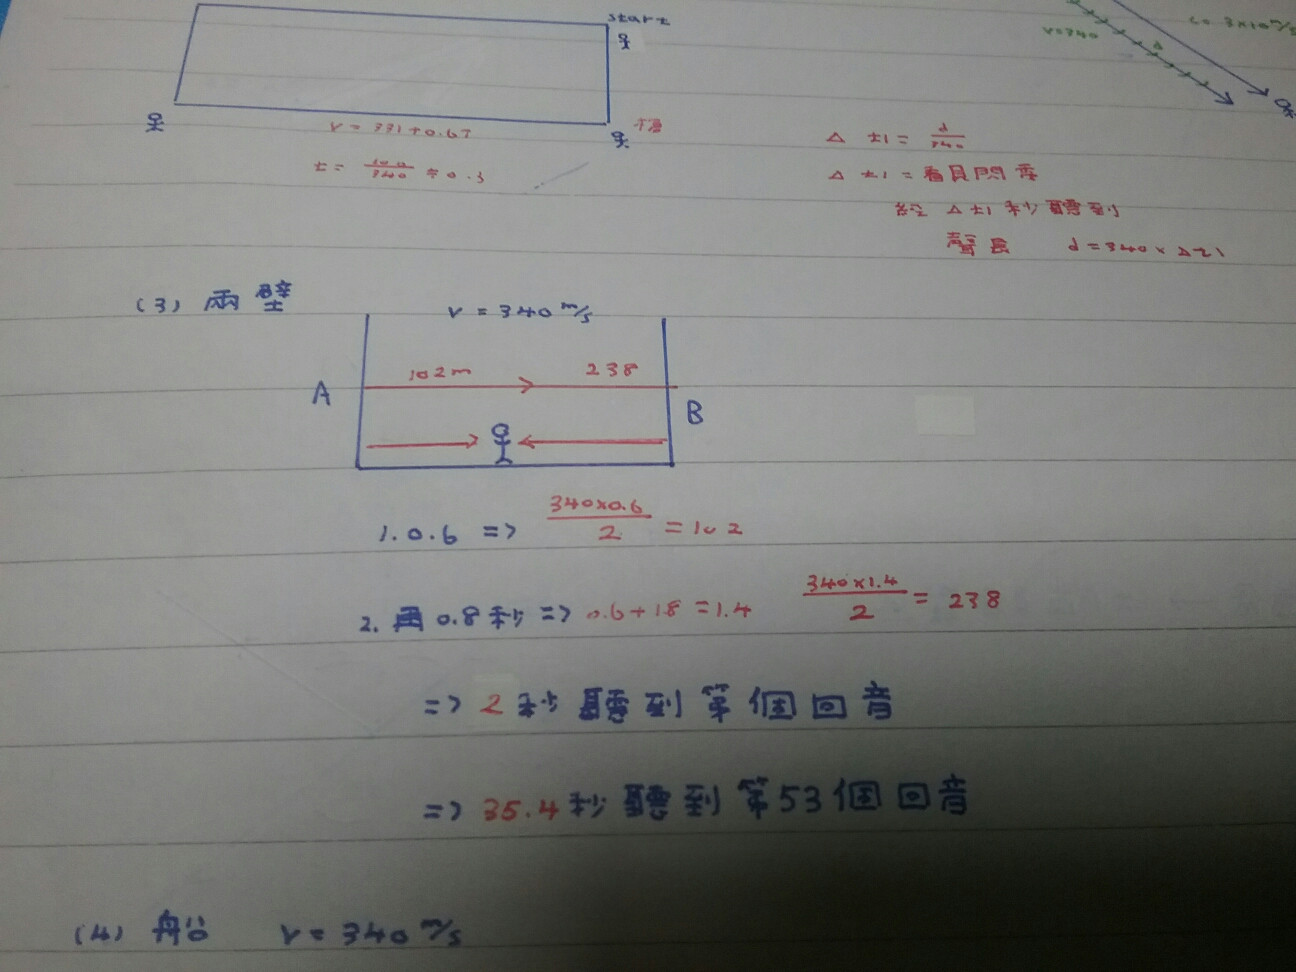 start
槍
v = 331+0.6T
t = 100/340 ≒ 0.3
v=340
c=3×10 m/s
Δt1 = d/340
Δt1 = 看見閃電
經 Δt1 秒聽到
聲 d = 340×Δt1
(3) 兩壁
v = 340 m/s
102m 238
A B
1. 0.6 => 340×0.6/2 = 102
2. 再 0.8 秒 => 0.6+18 = 1.4 340×1.4/2 = 238
=> 2 秒聽到第個回音
=> 35.4 秒聽到第53個回音
(4) 船 v = 340 m/s